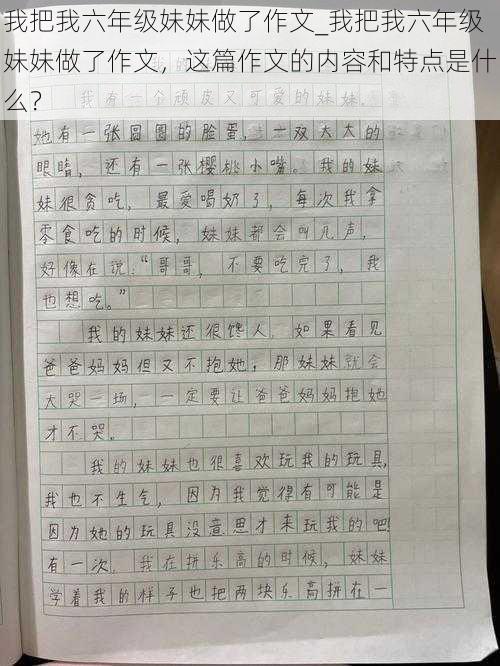 我把我六年级妹妹做了作文_我把我六年级
妹妹做了作文，这篇作文的内容和特点是什
么？
我有一个顽皮又可爱的妹妹.
她有一张圆圆的脸蛋，一双大大的
眼睛，还有一张樱桃小嘴。我的妹
妹很贪吃，最爱喝奶了，每次我拿
零食吃的时候，妹妹都会叫几声，
好像在说：“哥哥，不要吃完了，我
也想吃。”
我的妹妹还很馋人，如果看见
爸爸妈妈但又不抱她，那妹妹就会
大哭一场，一定要让爸爸妈妈抱她
才不哭。
我的妹妹也很喜欢玩我的玩具，
我也不生气，因为我觉得有可能是
因为她的玩具没意思才来玩我的吧！
有一次，我在拼乐高的时候，妹妹
学着我的样子也把两块乐高拼在一